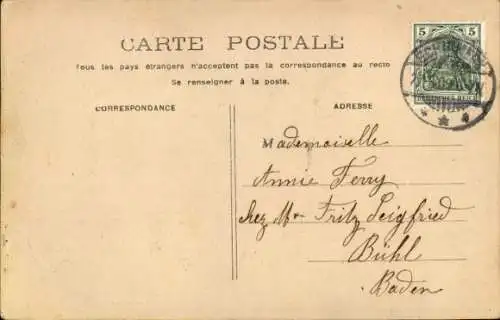 CARTE POSTALE
Tous les pays étrangers n'acceptent pas la correspondance au recto
Se renseigner à la poste.
CORRESPONDANCE
ADRESSE
5 5
DEUTSCHES REICH
Mademoiselle
Annie Ferry
chez Mr Fritz Seigfried
Bühl
Baden